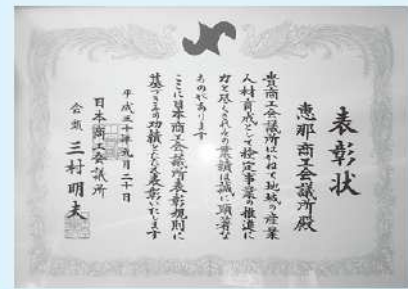 表彰状
恵那商工会議所殿
貴商工会議所はかねて地域の産業
人材育成として検定事業の推進に
力を尽くされその業績は誠に顕著な
ものがあります
ここに日本商工会議所表彰規則に
基づきその功績をたたえ表彰いたします
平成三十年九月二十日
日本商工会議所
会頭 三村明夫